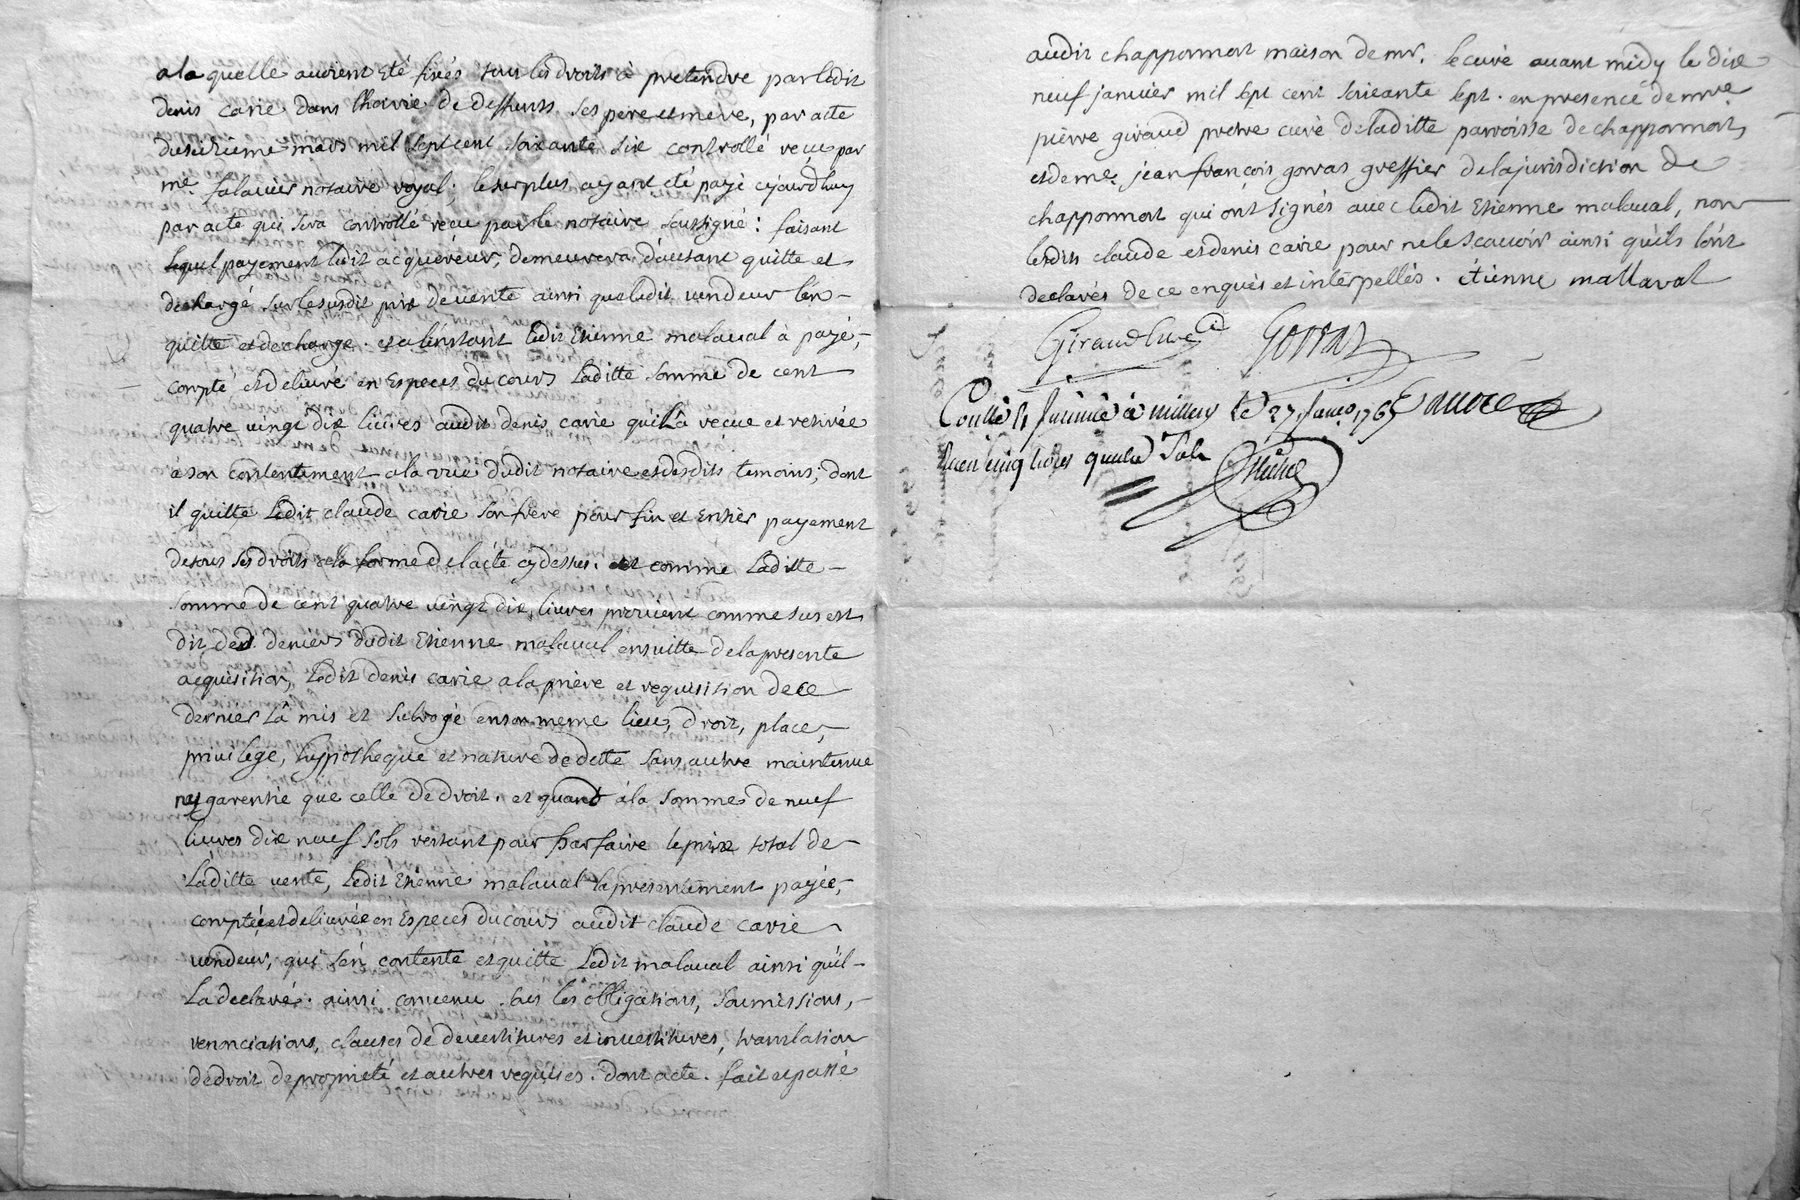 a la quelle avoient eté fixés tous les droits à pretendre par ledit
denis carie dans l'hoirie de deffunts ses pere et mere, par acte
du seizieme mars mil sept cent soixante six controllé reçu par
me. falavier notaire royal; le surplus ayant été payé cejourd'huy
par acte qui sera controllé reçu par le notaire soussigné: faisant
lequel payement ledit acquéreur, demeurera d'autant quitte et
dechargé sur le susdit prix de vente ainsi que ledit vendeur l'en
quitte et decharge. et a l'instant ledit Etienne malaval à payé,
compté et delivré en Especes du cours Laditte somme de cent
quatre vingt dix livres audit denis carie qui l'à reçue et retirée
à son contentement a la vüe dudit notaire et desdits temoins; dont
il quitte Ledit claude carie son frere pour fin et Entier payement
de tous ses droits a la forme de l'acte cy dessus. et comme Laditte
somme de cent quatre vingt dix livres provient comme sus est
dit des deniers dudit Etienne malaval ensuitte de la presente
acquisition, Ledit denis carie a la priere et requisition de ce
dernier L'â mis et subrogé en son meme lieu, droit, place,
privilege, hypotheque et nature de dette sans autre maintenue
ny garentie que celle de droit. et quand à la somme de neuf
livres dix neuf sols restant pour parfaire le prix total de
Laditte vente, Ledit Etienne malaval l'a presentement payée,
comptée et delivrée en Especes du cours audit claude carie
vendeur, qui s'en contente et quitte Ledit malaval ainsi qu'il
L'a declaré. ainsi convenu sous les obligations, soumissions,
renonciations, clauses de devestitures et investitures, translation
de droit de propriété et autres requises. dont acte. fait et passé
audit chapponnost maison de mr. le curé avant midy le dix
neuf janvier mil sept cent soixante sept. en presence de mre.
pierre giraud pretre curé de laditte parroisse de chapponnost,
et de me. jean françois gorras greffier de la jurisdiction de
chapponnost qui ont signés avec ledit Etienne malaval, non
lesdits claude et denis carie pour ne le scavoir ainsi qu'ils l'ont
declarés de ce enquis et interpellés. étienne mallaval
Giraud Curé Gorras
Conllé & Insinué à millery Le 27 janv. 1767
Reçu cinq livres quatre sols